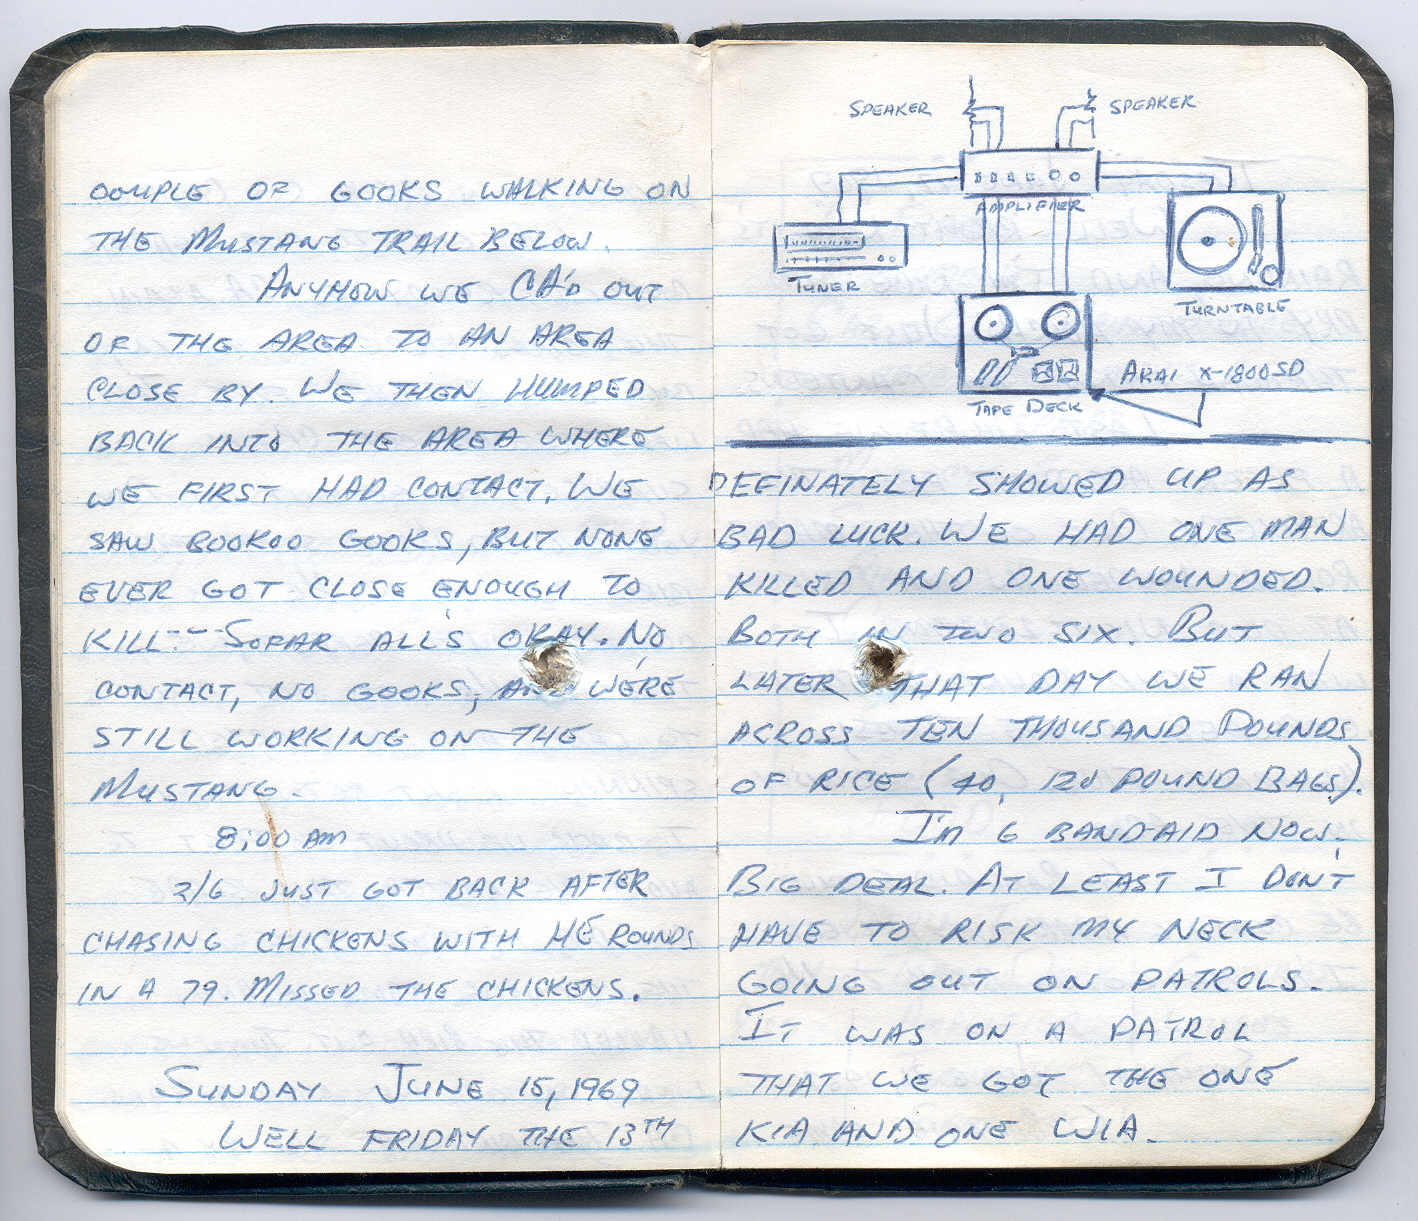 COUPLE OF GOOKS WALKING ON
THE MUSTANG TRAIL BELOW.
ANYHOW WE CA'D OUT
OF THE AREA TO AN AREA
CLOSE BY. WE THEN HUMPED
BACK INTO THE AREA WHERE
WE FIRST HAD CONTACT. WE
SAW BOOKOO GOOKS, BUT NONE
EVER GOT CLOSE ENOUGH TO
KILL -- SOFAR ALL'S OKAY. NO
CONTACT, NO GOOKS, AND WE'RE
STILL WORKING ON THE
MUSTANG.
8:00 AM
3/6 JUST GOT BACK AFTER
CHASING CHICKENS WITH HE ROUNDS
IN A 79. MISSED THE CHICKENS.
SUNDAY JUNE 15, 1969
WELL FRIDAY THE 13TH
SPEAKER
SPEAKER
AMPLIFIER
TUNER
TURNTABLE
AKAI X-1800SD
TAPE DECK
DEFINATELY SHOWED UP AS
BAD LUCK. WE HAD ONE MAN
KILLED AND ONE WOUNDED.
BOTH IN TWO SIX. BUT
LATER THAT DAY WE RAN
ACROSS TEN THOUSAND POUNDS
OF RICE (40, 120 POUND BAGS).
I'M 6 BAND-AID NOW.
BIG DEAL. AT LEAST I DON'T
HAVE TO RISK MY NECK
GOING OUT ON PATROLS.
IT WAS ON A PATROL
THAT WE GOT THE ONE
KIA AND ONE WIA.